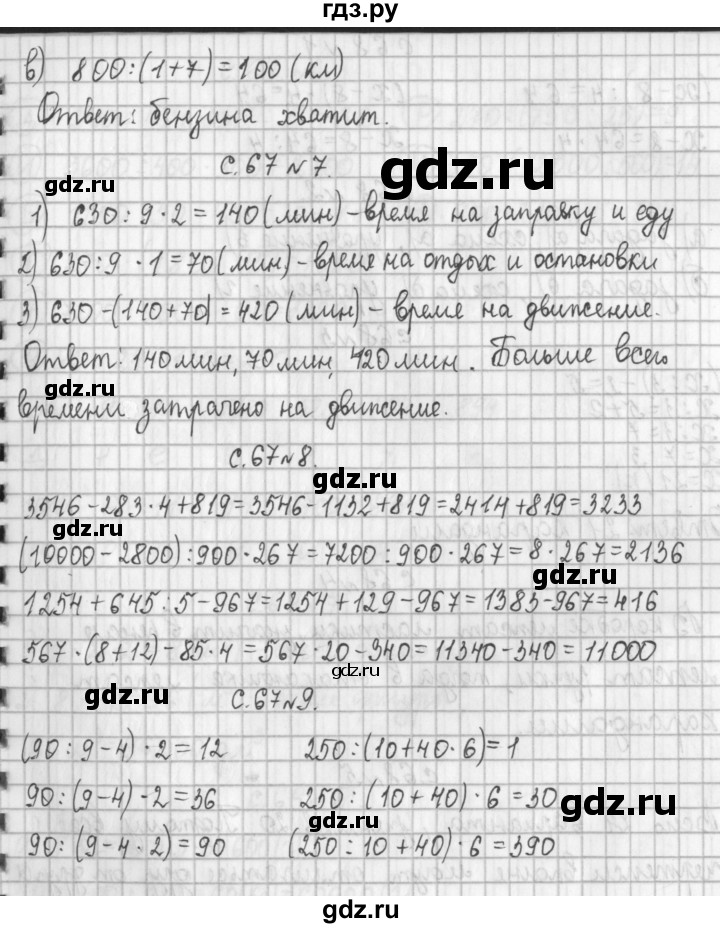 гдз.ру
в) 800:(1+7)=100(км)
Ответ: бензина хватит.
с.67 №7.
gdz.ru
gdz.ru
1) 630:9·2=140(мин)-время на заправку и еду
2) 630:9·1=70(мин)-время на отдых и остановки
gdz.ru
3) 630-(140+70)=420(мин)-время на движение.
gdz.ru
Ответ: 140мин, 70мин, 420мин. Больше всего
gdz.ru
времени затрачено на движение.
с.67№8.
gdz.ru
3546-283·4+819=3546-1132+819=2414+819=3233
gdz.ru
(10000-2800):900·267=7200:900·267=8·267=2136
gdz.ru
1254+645:5-967=1254+129-967=1383-967=416
567·(8+12)-85·4=567·20-340=11340-340=11000
gdz.ru
gdz.ru
с.67№9.
(90:9-4)·2=12 250:(10+40·6)=1
90:(9-4)·2=36 250:(10+40)·6=30
gdz.ru
gdz.ru
90:(9-4·2)=90 (250:10+40)·6=390
gdz.ru
gdz.ru